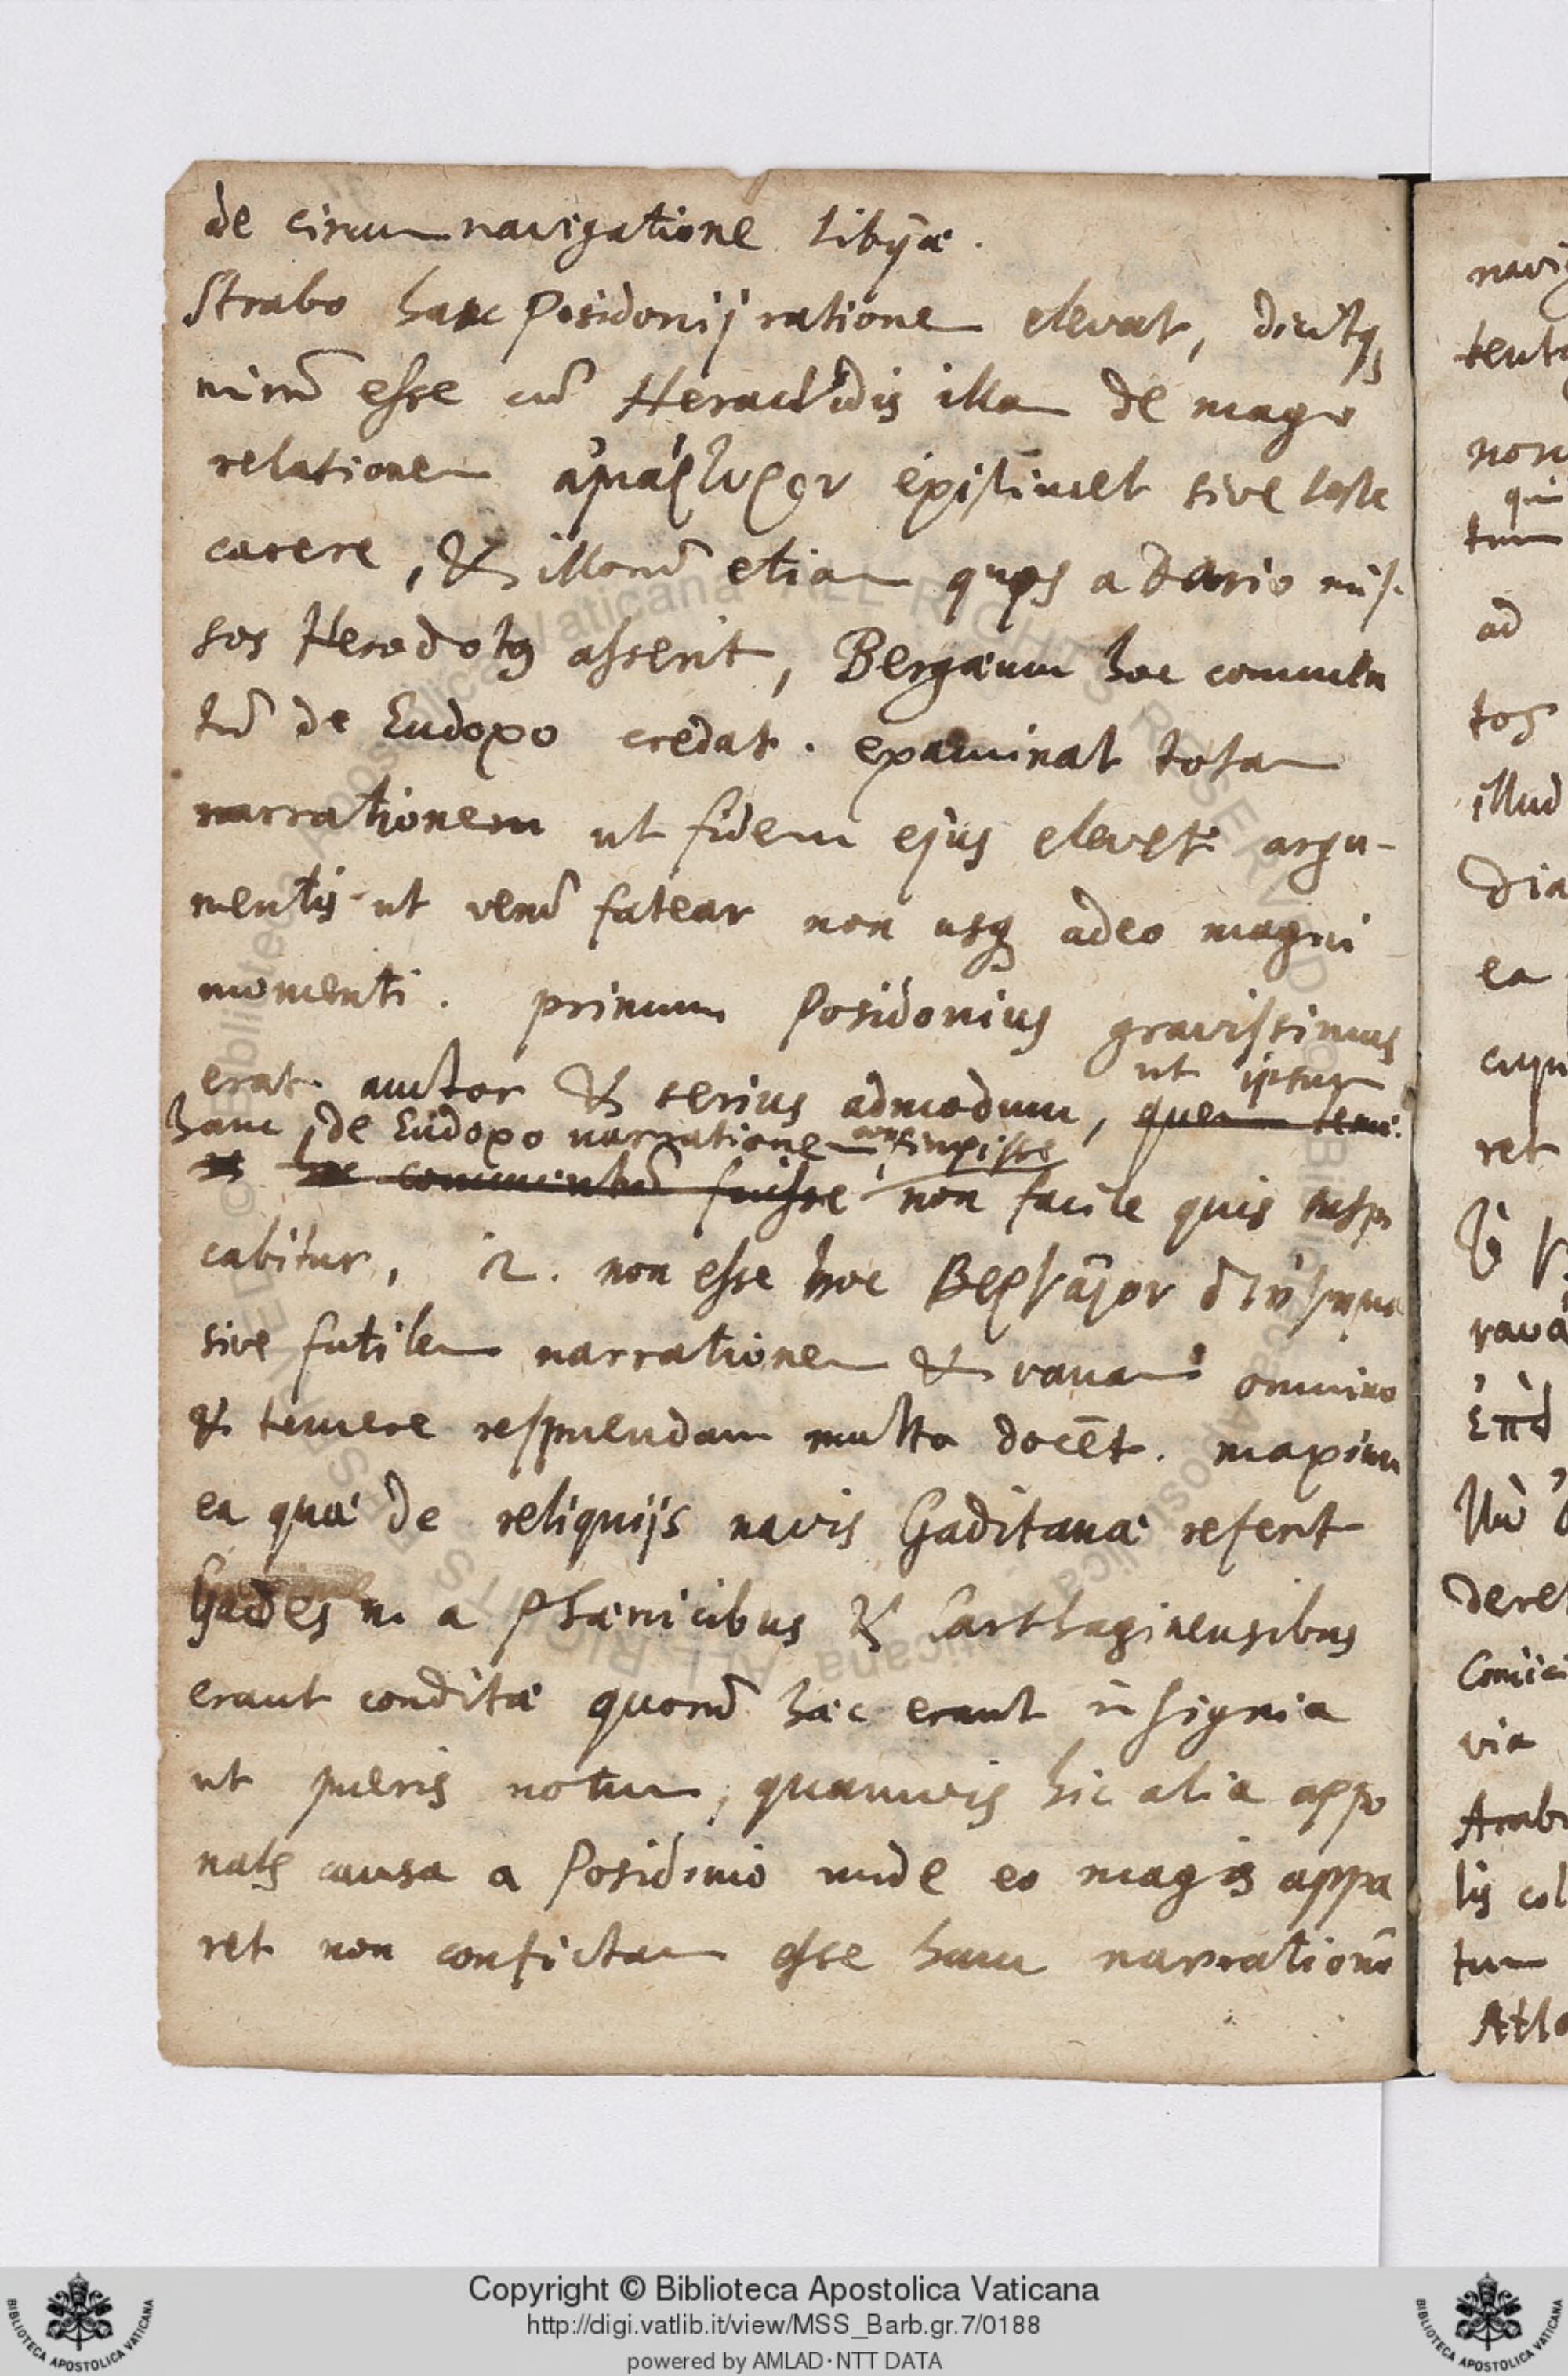 de circumnavigatione Libyæ.
Strabo hanc Posidonij rationem elevat, dicitq;
mirũ esse cũ Heraclidis illam de mago
relationem ἀμάρτυρον existimet sive teste
carere, & illorũ etiam quos a Dario mis-
sos Herodotus asserit, Bergæum hoc commen
tũ de Eudoxo credat. examinat totam
narrationem ut fidem ejus elevet argu-
mentis ut verũ fatear non usq; adeo magni
momenti. primum Posidonius gravissimus
erat auctor & serius admodum, quem temé
ut ipsum
hanc de Eudoxo narrationem confinxisse
hoc commentũ fuisse non facile quis suspi
cabitur, 2. non esse hoc Βεργαῖον διήγημα
sive futilem narrationem & vanam omnino
& temere respuendam multa docẽt. maxime
ea quæ de reliquijs navis Gaditanæ refert
Gades n. a Phœnicibus & Carthaginensibus
erant conditæ quorũ hæc erant insignia
ut pueris notum, quamvis hic alia appo
natur causa a Posidonio unde eo magis appa
ret non confictam esse hanc narrationẽ
navig
tenta
non
qui
tum
ad
tos
illud
dia
ea
cuju
ret
ravá
dere
via
Arab
lis col
tum
Atla
Copyright © Biblioteca Apostolica Vaticana
http://digi.vatlib.it/view/MSS_Barb.gr.7/0188
powered by AMLAD·NTT DATA
BIBLIOTECA APOSTOLICA VATICANA
BIBLIOTECA APOSTOLICA VATICANA